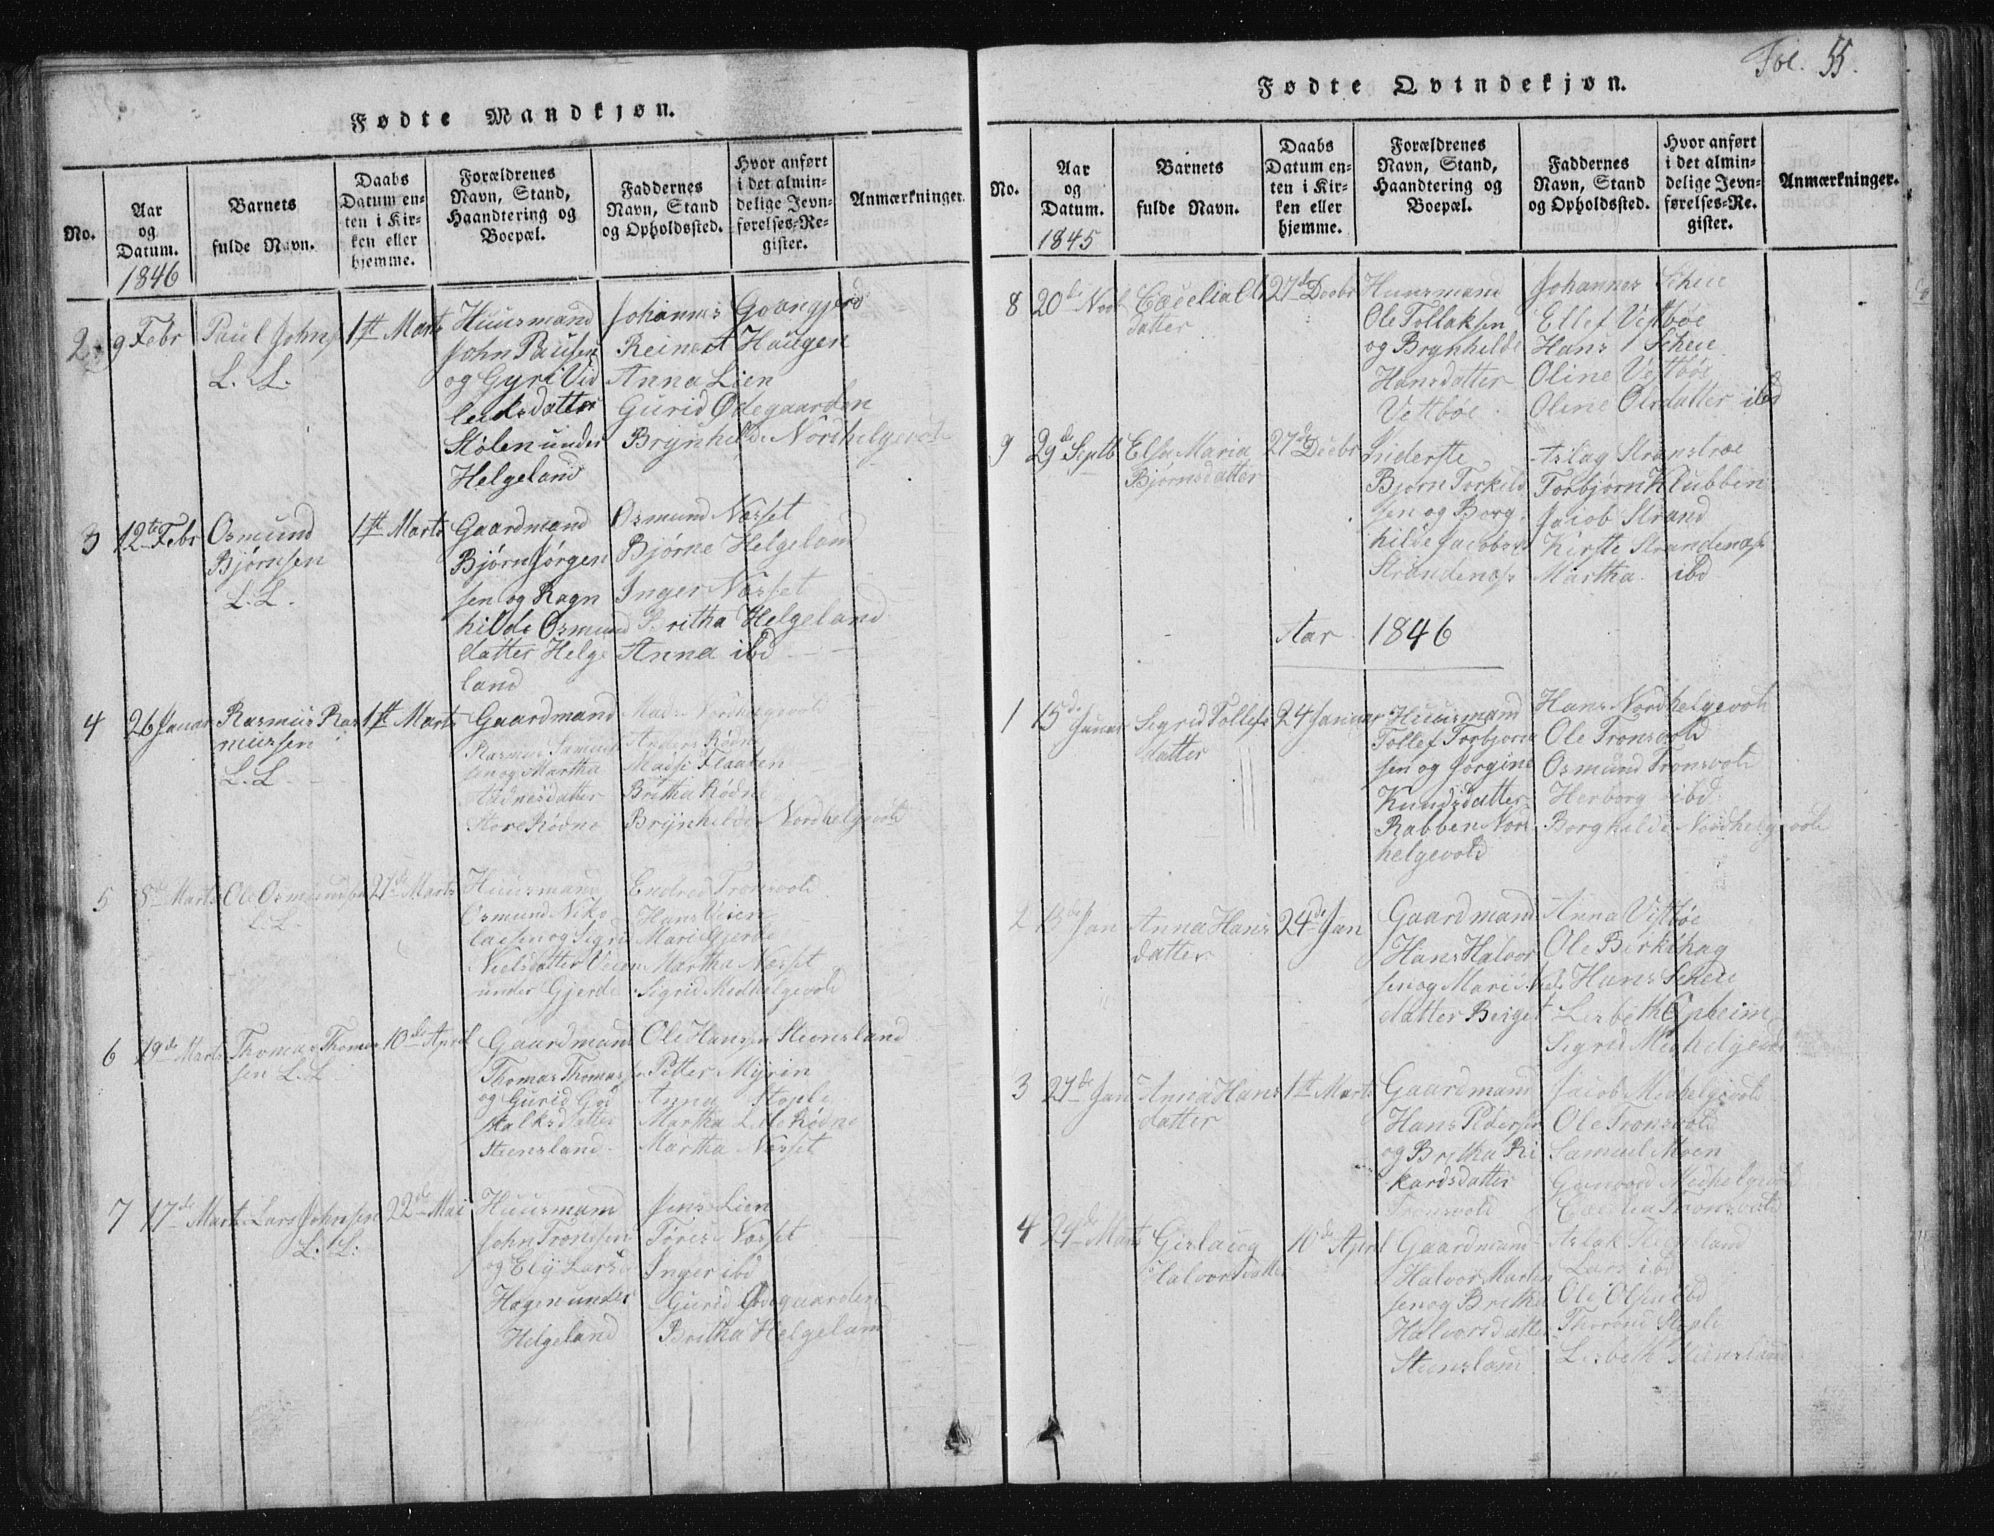 Fødte Mandkjøn.
No.
Aar
og
Datum.
1846
Barnets
fulde Navn.
Daabs
Datum en-
ten i Kir-
ken eller
hjemme.
Forældrenes
Navn, Stand,
Haandtering og
Boepæl.
Faddernes
Navn, Stand
og Opholdssted.
Hvor anført
i det almin-
delige Jevn-
førelses-Re-
gister.
Anmærkninger.
2 9 Febr Paul Johns 1st Marts
L. L.
Huusmand
John Paulsen
og Gyri Vid
leiksdatter
Stølen under
Helgeland
Johannes
Reinert Haugen
Anna Lien
Gurid Ødegaarden
Brynhilde Nordhelgevold
3 12te Febr Osmund 1st Marts
Bjørnsen
L. L.
Gaardmand
Bjørn Jørgen
sen og Ragn
hilde Osmund
datter Helge
land
Osmund Næsset
Bjørne Helgeland
Inger Næsset
Britha Helgeland
Anna ibd
4 26 Januar Rasmus Ras 1st Marts
mussen
L. L.
Gaardmand
Rasmus Samuel
sen og Martha
Aadnesdatter
Store Rødne
Mads Nordhelgevold
Anders Rødne
Madsi Flaaten
Britha Rødne
Brynhilde Nordhelgevold
5 8de Marts Ole Osmundsen 27de Marts
L. L.
Huusmand
Osmund Niko
laisen og Sigri
Nielsdatter Veien
under Gjerde
Endred Tronsvold
Hans Veien
Mari Gjerde
Martha Næsset
Sigrid Medhelgevold
6 19de Marts Thomas Thomas 10de April
sen L. L
Gaardmand
Thomas Thomassen
og Gurid God
skalksdatter
Stensland
Ole Hanssen Stensland
Petter Myrin
Anna Støple
Martha Lille Rødne
Martha Næsset
7 17de Marts Lars Johnsen 22de Mai
L. L.
Huusmand
John Trondsen
og Elij Larsd
Hagen under
Helgeland
Jens Lien
Tores Næsset
Inger ibd
Gurid Ødegaarden
Britha Helgeland
Fol. 55.
Fødte Qvindekjøn.
No.
Aar
og
Datum.
1845
Barnets
fulde Navn.
Daabs
Datum en-
ten i Kir-
ken eller
hjemme.
Forældrenes
Navn, Stand,
Haandtering og
Boepæl.
Faddernes
Navn, Stand
og Opholdssted.
Hvor anført
i det almin-
delige Jevn-
førelses-Re-
gister.
Anmærkninger.
8 20de Novb Cecelia Ols 27de Decbr
datter
Huusmand
Ole Tollaksen
og Brynhilde
Hansdatter
Vestbøe
Johannes Scheie
Ellef Vestbøe
Hans Scheie
Oline Vestbøe
Oline Olsdatter ibd
9 29de Septb Elsa Maria 27de Decbr
Bjørnsdatter
Inderste
Bjørn Torkild
sen og Borg
hilde Jacobsd
Strandenæs
Aslag
Torbjørn Klubben
Jacob Strand
Kirste Strandenæs
Martha ibd
Aar 1846
1 15de Januar Sigrid Tollefs 24 Januar
datter
Huusmand
Tollef Torbjørn
sen og Jorgine
Knudsdatter
Rabben Nord
helgevold
Hans Nordhelgevold
Ole Tronsvold
Osmund Tronsvold
Herborg ibd
Borghilde Nordhelgevold
2 13de Jan Anna Hans 24de Jan
datter
Gaardmand
Hans Halvor
sen og Mari
datter Berget
Anna Vestbøe
Ole Birkehag
Hans Scheie
Lisbeth Opheim
Sigrid Medhelgevold
3 27de Jan Anna Hans 1st Marts
datter
Gaardmand
Hans Pedersen
og Britha Ri
kardsdatter
Tronsvold
Jacob Medhelgevold
Ole Tronsvold
Samuel Moen
Gunvord Medhelgevold
Cecelia Tronsvold
4 24de Marts Gislaug 10de April
Halvorsdatter
Gaardmand
Halvor Morten
sen og Britha
Halvorsdatter
Stensland
Aslak Stensland
Lars ibd
Ole Olsen ibd
Thorone Støple
Lisbeth Stensland